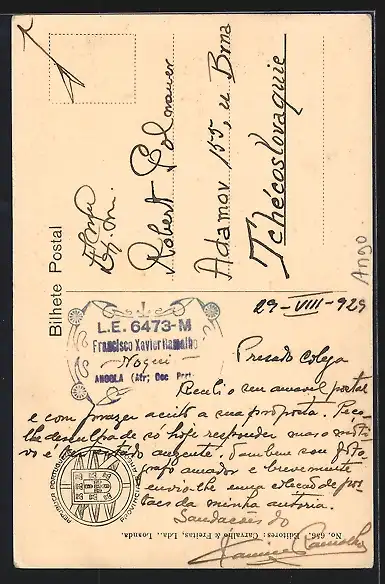 Bilhete Postal
Robert
Adamov 155, u Brna
Tchécoslovaquie
Ango.
29-VIII-929
L.E. 6473-M
Francisco Xavier Ramalho
Noqui
ANGOLA (Afr; Occ Port
Presado colega
Recebi o seu amavel postal
e com prazer aceito a sua proposta. Peço-
lhe desculpa de só hoje responder mas o moti-
vo é ter estado ausente. Tambem sou foto
grafo amador e brevemente
envio-lhe uma colecção de pos
taes da minha autoria.
Saudações do
Ramalho
No. 656. Editores: Carvalho & Freitas, Lda., Loanda.